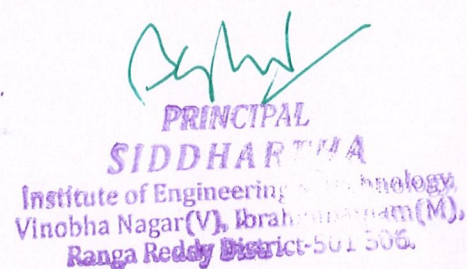 PRINCIPAL
SIDDHARTHA
Institute of Engineering & Technology,
Vinobha Nagar(V), Ibrahimpatnam(M),
Ranga Reddy District-501 506.